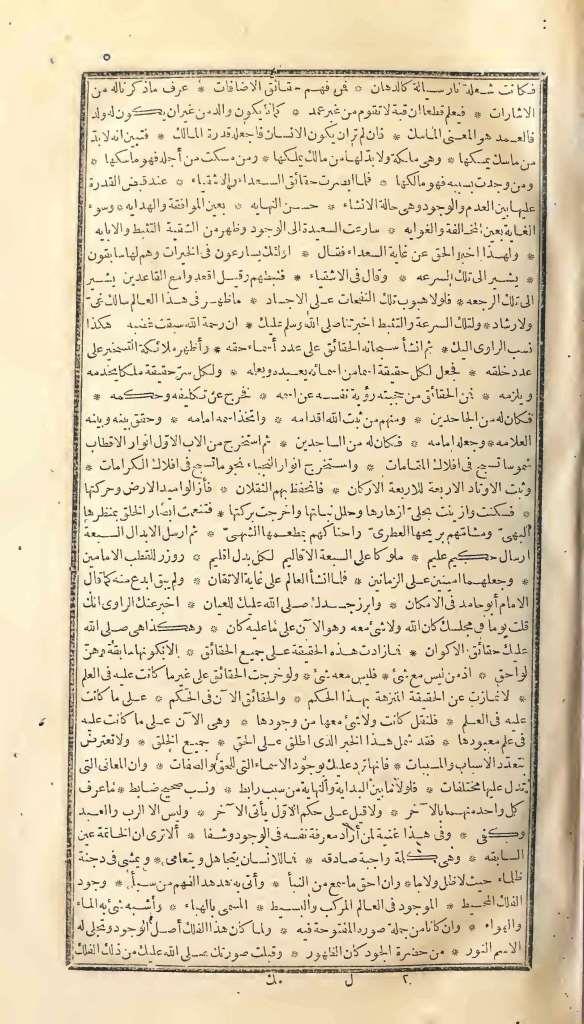 ٥
فكانت شعلة نار سيالة كالدهان * فمن فهم حقائق الاضافات * عرف ما ذكرناه من
الاشارات * فيعلم قطعا ان قبة لا تقوم من غير عمد * كما لا يكون والد من غير ان يكون له ولد
فالعمد هو المعنى الماسك * فان لم تر أن يكون الانسان فاجعله قدرة المالك * فتبين انه لا بد
من ماسك يمسكها * وهى مملكة ولا بد لها من مالك يملكها * ومن مسكت من أجله فهو ماسكها *
ومن وجدت بسببه فهو مالكها * فلما ابصرت حقائق السعداء والاشقياء * عند قبض القدرة
عليها بين العدم والوجود وهى حالة الانشاء * حسن النهايه * بعين الموافقة والهدايه * وسوء
الغاية بعين المخالفة والغوايه * سارعت السعيدة الى الوجود وظهر من الشقية التثبط والابايه
* ولهذا اخبر الحق عن غاية السعداء فقال * اولئك يسارعون فى الخيرات وهم لها سابقون
* يشير الى تلك السرعه * وقال فى الاشقياء * فثبطهم وقيل اقعدوا مع القاعدين يشير
الى تلك الرجعه * فلولا هبوب تلك النفحات على الاجساد * ما ظهر فى هذا العالم سالك غى
ولا رشاد * ولتلك السرعة والتثبط اخبرتنا صلى الله وسلم عليك * ان رحمة الله سبقت غضبه هكذا
نسب الراوى اليك * ثم انشأ سبحانه الحقائق على عدد أسماء حقه * وأظهر ملائكة التسخير على
عدد خلقه * فجعل لكل حقيقة اسما من اسمائه يعبده ويعلمه * ولكل سر حقيقة ملكا يخدمه
ويلزمه * فمن الحقائق من حجبته رؤية نفسه عن اسمه * فخرج عن تكليفه وحكمه *
فكان له من الجاحدين * ومنهم من ثبت الله اقدامه * واتخذ اسمه امامه * وحقق بينه وبينه
العلامه * وجعله امامه * فكان له من الساجدين * ثم استخرج من الاب الاول انوار الاقطاب
شموسا تسبح فى افلاك المقامات * واستخرج انوار النجباء نجوما تسبح فى افلاك الكرامات *
وثبت الاوتاد الاربعة للاربعة الاركان * فانحفظ بهم الثقلان * فأزالوا ميد الارض وحركتها
* فسكنت وازينت بحلى ازهارها وحلل نباتها واخرجت بركتها * فتنعمت ابصار الخلق بمنظرها
البهى * ومشامّهم بريحها العطرى * واحناكهم بمطعمها الشهى * ثم ارسل الابدال السبعة
ارسال حكيم عليم * ملوكا على السبعة الاقاليم * لكل بدل اقليم * ووزر للقطب الامامين
* وجعلهما امينين على الزمامين * فلما انشأ العالم على غاية الاتقان * ولم يبق ابدع منه كما قال
الامام أبو حامد فى الامكان * وابرز جسدك صلى الله عليك للعيان * اخبر عنك الراوى انك
قلت يوما فى مجلسك كان الله ولا شئ معه وهو الآن على ما عليه كان * وهكذا هى صلى الله
عليك حقائق الاكوان * فما زادت هذه الحقيقة على جميع الحقائق * الا بكونها سابقة وهن
لواحق * اذ من ليس مع شئ * فليس معه شئ * ولو خرجت الحقائق على غير ما كانت عليه فى العلم
* لانمازت عن الحقيقة المنزهة بهذا الحكم * والحقائق الآن فى الحكم * على ما كانت
عليه فى العلم * فلنقل كانت ولا شئ معها من وجودها * وهى الآن على ما كانت عليه
فى علم معبودها * فقد شمل هذا الخبر الذى اطلق على الحق * جميع الخلق * ولا تعترض
بتعدد الاسباب والمسببات * فانها ترد عليك بوجود الاسماء التى للحق والصفات * وان المعانى التى
تدل عليها مختلفات * فلولا ما بين البداية والنهاية من سبب رابط * ونسب صحيح ضابط * ما عرف
كل واحد منهما بالآخر * ولا قيل على حكم الاول يأتى الآخر * وليس الا الرب والعبد
وكفى * وفى هذا غنية لمن أراد معرفة نفسه فى الوجود وشفا * ألا ترى ان الخاتمة عين
السابقه * وهى كلمة واجبة صادقه * فما للانسان يتجاهل ويتعامى * ويمشى فى دجنة
ظلماء حيث لا ظل ولا ما * وان احق ما سمع من النبأ * وأتى به هدهد الفهم من سبأ * وجود
الفلك المحيط * الموجود فى العالم المركب والبسيط * المسمى بالهباء * وأشبه شئ به الماء
والهواء * وان كانا من جملة صوره المفتوحة فيه * ولما كان هذا الفلك أصل الوجود وتجلى له
الاسم النور * من حضرة الجود كان الظهور * وقبلت صورتك صلى الله عليك من ذلك الفلك
٢ ل مك